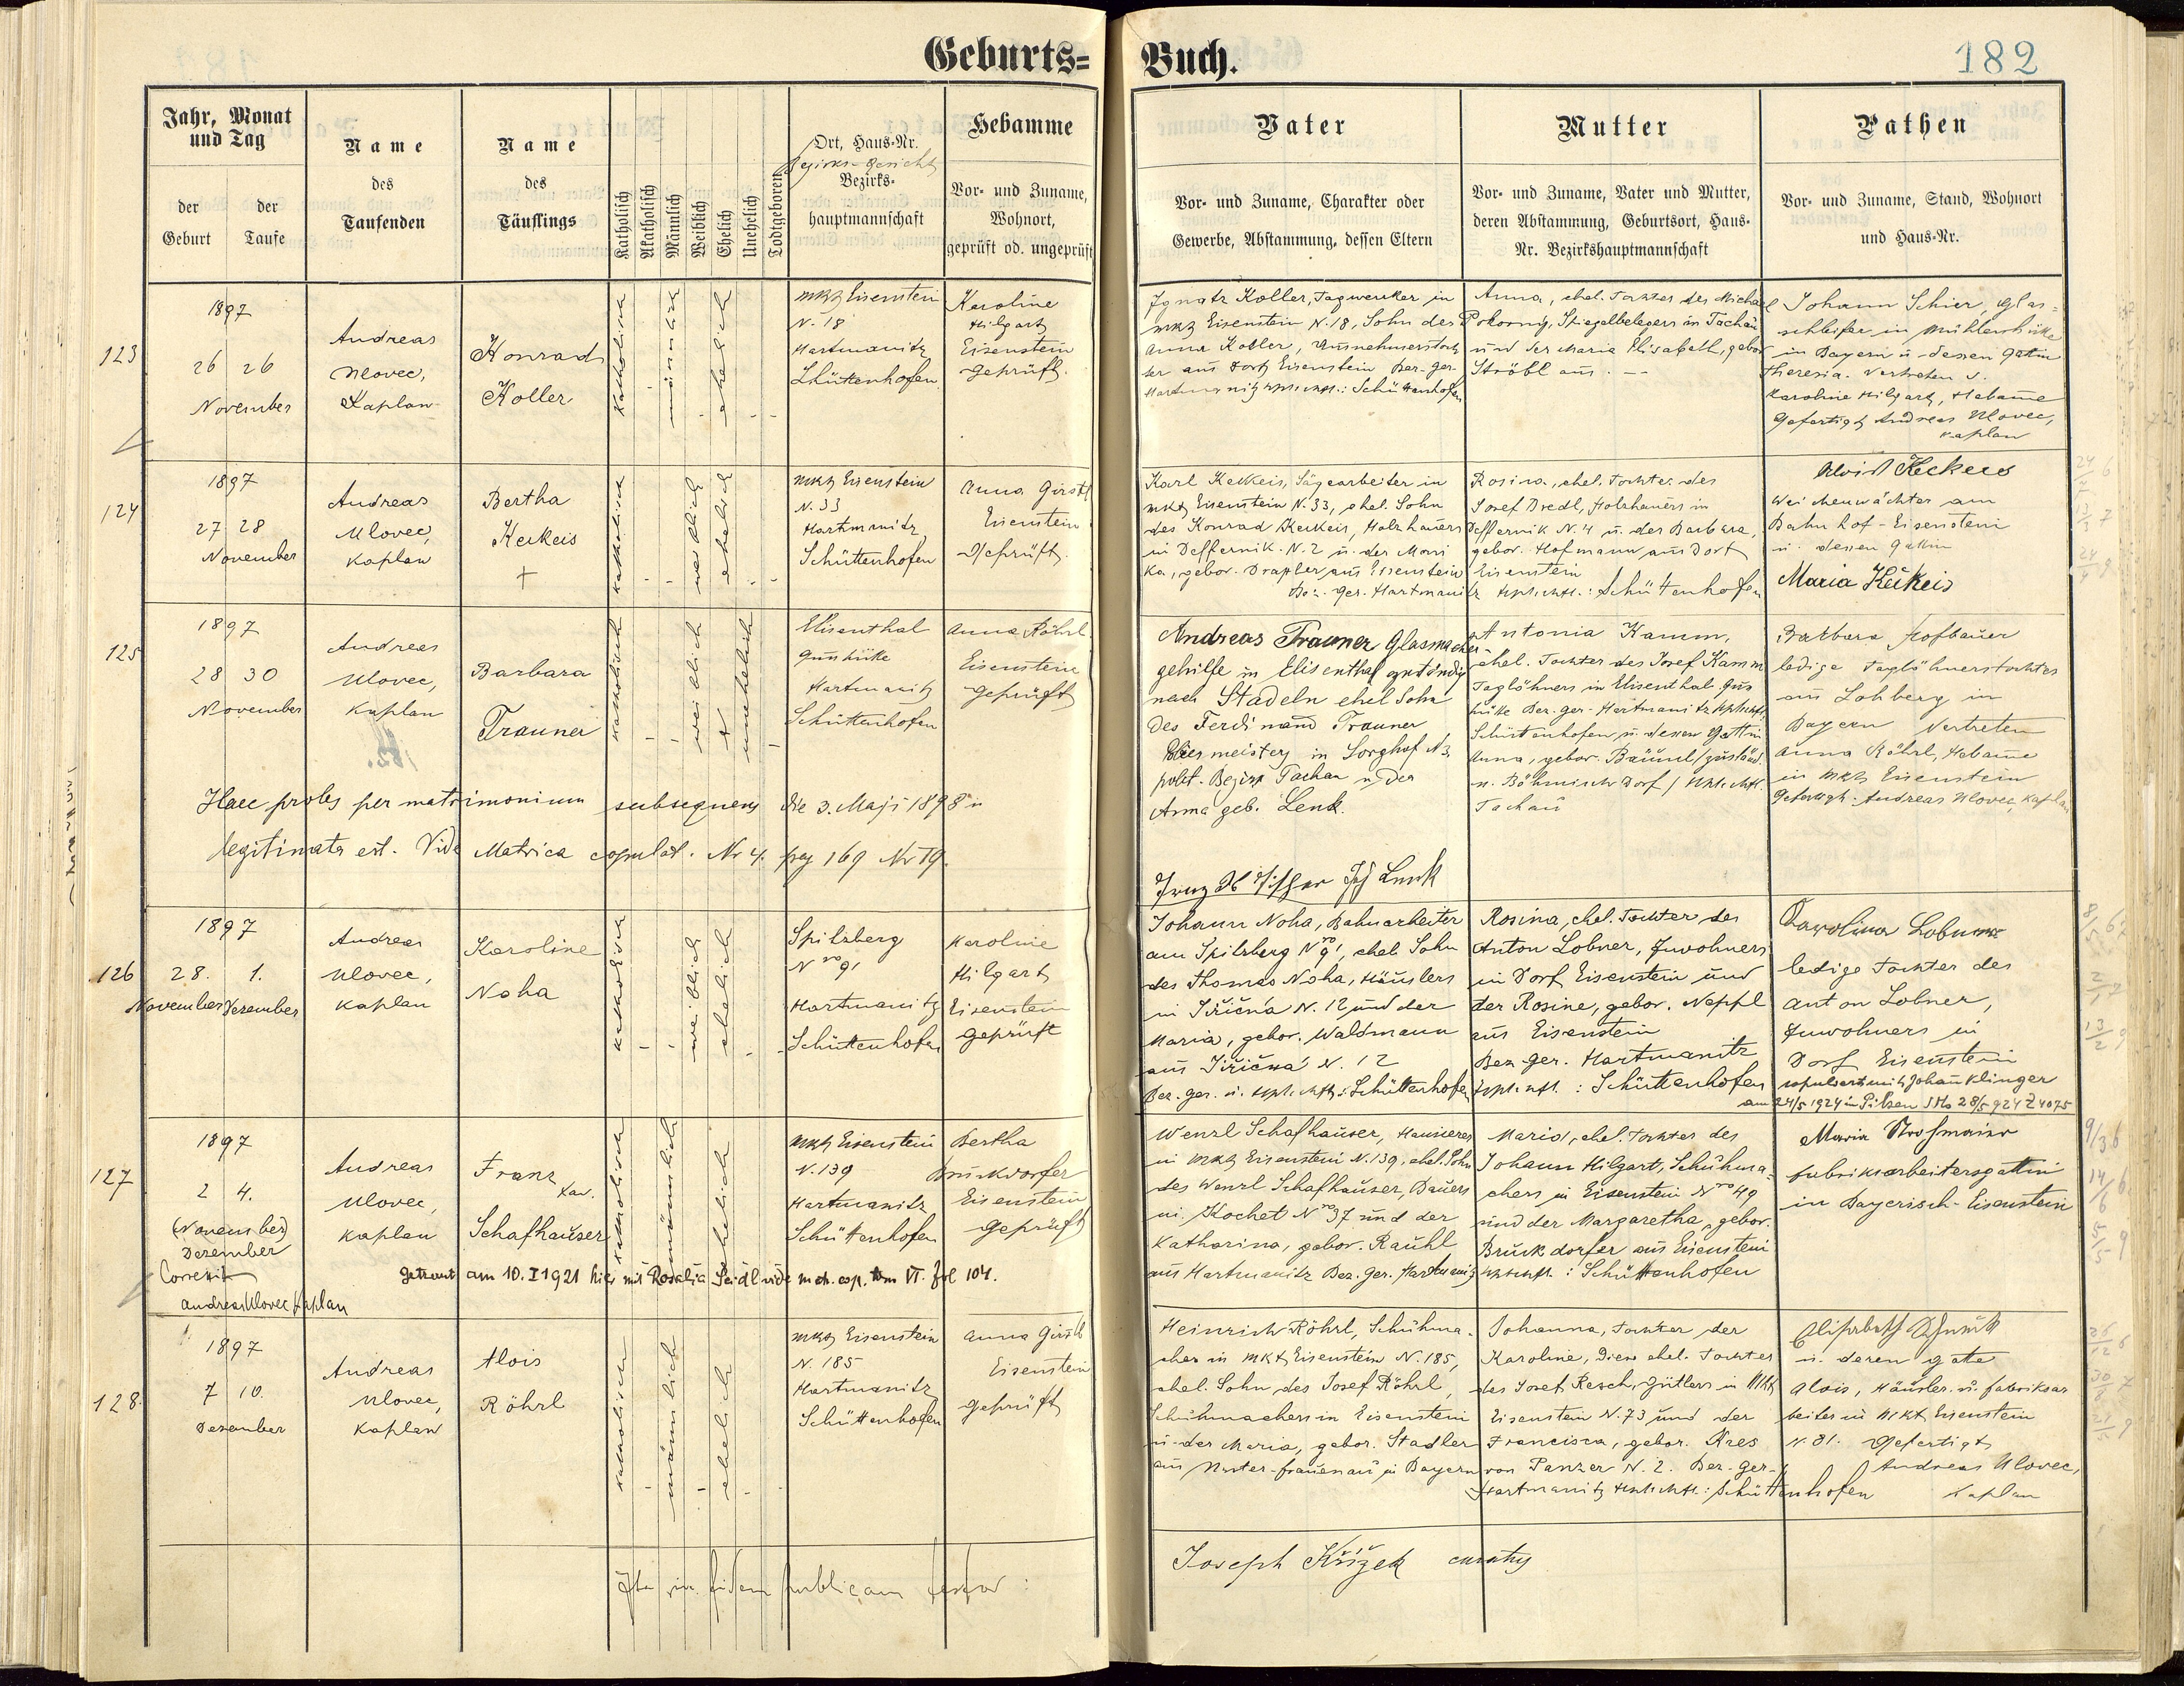 Geburts=
Buch.
182
Jahr, Monat
und Tag
der
Geburt
der
Taufe
Name
des
Taufenden
Name
des
Täuflings
Katholisch
Akatholisch
Männlich
Weiblich
Ehelich
Unehelich
Todtgeboren
Ort, Haus-Nr.
Bezirks-Gericht
Bezirks-
hauptmannschaft
Hebamme
Vor- und Zuname,
Wohnort,
geprüft od. ungeprüft
Vater
Vor- und Zuname, Charakter oder
Gewerbe, Abstammung, dessen Eltern
Mutter
Vor- und Zuname, Vater und Mutter,
deren Abstammung, Geburtsort, Haus-
Nr. Bezirkshauptmannschaft
Pathen
Vor- und Zuname, Stand, Wohnort
und Haus-Nr.
123
1897
26 26
November
Andreas
Ulovec,
Kaplan
Konrad
Koller
katholisch
männlich
ehelich
Mkt Eisenstein
N. 18
Hartmanitz
Schüttenhofen
Karoline
Hilgart
Eisenstein
geprüft.
Ignatz Koller, Tagwerker in
Mkt Eisenstein N. 18, Sohn des
Anna Koller, Ausnehmerstoch
ter aus Dorf Eisenstein Bez-Ger-
Hartmanitz : Schüttenhofen
Anna, ehel. Tochter des Michael
Pokorny, Spiegelbelegers in Tachau
und der Maria Elisabeth, gebor
Ströbl aus. —
Johann Schier, Glas=
schleifer in
in Bayern u. dessen Gattin
Theresia. Vertreten d.
Karoline Hilgart, Hebamme
Gefertigt Andreas Ulovec,
Kaplan
124
1897
27 28
November
Andreas
Ulovec,
Kaplan
Bertha
Keckeis
+
katholisch
weiblich
ehelich
Mkt Eisenstein
N. 33
Hartmanitz
Schüttenhofen
Anna Girstl
Eisenstein
Geprüft.
Karl Keckeis, Sägearbeiter in
Mkt Eisenstein N. 33, ehel. Sohn
des Konrad Keckeis, Holzhauers
in Deffernik N. 2 u. der Moni
ka, gebor. Draxler aus Eisenstein
Bez. Ger. Hartmanitz
Rosina, ehel. Tochter des
Josef Bredl, Holzhauers in
Deffernik N. 4 u. der Barbara,
gebor. Hofmann aus Dorf
Eisenstein
: Schüttenhofen
Alois Keckeis
Weichenwächter am
Bahnhof-Eisenstein
u. dessen Gattin
Maria Keckeis
125
1897
28 30
November
Andreas
Ulovec,
Kaplan
Barbara
Trauner
katholisch
weiblich
unehelich
Elisenthal
Gusshütte
Hartmanitz
Schüttenhofen
Anna Röhrl
Eisenstein
geprüft
Andreas Trauner Glasmacher-
gehilfe in Elisenthal zuständig
nach Stadeln ehel Sohn
des Ferdinand Trauner
in Sorghof N 3
polit. Bezirk Tachau u. der
Anna geb. Lenk.
Antonia Kamm,
ehel. Tochter des Josef Kamm
Taglöhners in Elisenthal Gus
hütte Bez. Ger- Hartmanitz
Schüttenhofen u. dessen Gattin
Anna, gebor. Bäuml
n. Böhmisch Dorf
Tachau
Barbara Hofbauer
ledige Taglöhnerstochter
aus Lohberg in
Bayern Vertreten
Anna Röhrl, Hebamme
in Mkt Eisenstein
Gefertigt: Andreas Ulovec, Kaplan
Haec proles per matrimonium subsequens die 3. Maji 1898
legitimata est. Vide Matrica copulat. Nr 4. pag 169 Nr 19.
126
1897
28. 1.
November Dezember
Andreas
Ulovec,
Kaplan
Karoline
Noha
katholisch
weiblich
ehelich
Spitzberg
Nro 9
Hartmanitz
Schüttenhofen
Karoline
Hilgart
Eisenstein
geprüft
Johann Noha, Bahnarbeiter
am Spitzberg Nro 9, ehel Sohn
des Thomas Noha, Häuslers
in Jiřična N. 12 und der
Maria, gebor. Waldmann
aus Jiřična N. 12
Bez. Ger. u. : Schüttenhofen
Rosina, ehel. Tochter des
Anton Lobner, Inwohners
in Dorf Eisenstein und
der Rosine, gebor. Neppl
aus Eisenstein
Bez-Ger. Hartmanitz
: Schüttenhofen
Carolina Lobner
ledige Tochter des
Anton Lobner,
Inwohners in
Dorf Eisenstein
copuliert mit Johann Klinger
am 24/5 1924 in Pilsen 28/5 924 Z 4075
127
1897
2 4.
(November)
Dezember
Correxit
Andreas Ulovec Kaplan
Andreas
Ulovec,
Kaplan
Franz
Xav.
Schafhauser
katholisch
männlich
ehelich
Mkt Eisenstein
N. 139
Hartmanitz
Schüttenhofen
Bertha
Bruckdorfer
Eisenstein
geprüft
getraut am 10. I 1921 hier mit Rosalia Seidl vide m ch. cop. tom VI. fol 104.
Wenzl Schafhauser, Hausierer
in Mkt Eisenstein N. 139, ehel. Sohn
des Wenzl Schafhauser, Bauers
in Kochet Nro 37 und der
Katharina, gebor. Rauhl
aus Hartmanitz Bez. Ger. Hartmanitz
Maria, ehel. Tochter des
Johann Hilgart, Schuhma-
chers in Eisenstein Nro 49
und der Margaretha, gebor.
Bruckdorfer aus Eisenstein
: Schüttenhofen
Maria
Fabriksarbeitersgattin
in Bayerisch-Eisenstein
128.
1897
7 10.
Dezember
Andreas
Ulovec,
Kaplan
Alois
Röhrl
katholisch
männlich
ehelich
Mkt Eisenstein
N. 185
Hartmanitz
Schüttenhofen
Anna Girstl
Eisenstein
geprüft
Heinrich Röhrl, Schuhma-
cher in Mkt Eisenstein N. 185,
ehel. Sohn des Josef Röhrl,
Schuhmachers in Eisenstein
u. der Maria, gebor. Stadler
aus in Bayern
Johanna, Tochter der
Karoline, Diese ehel. Tochter
des Josef Resch, Gütlers in Mkt
Eisenstein N. 73 und der
Francisca, gebor. Kres
von Panzer N. 2. Bez-Ger-
Hartmanitz : Schüttenhofen
u. deren Gatte
Alois, Häusler u. Fabriksar
beiter in Mkt Eisenstein
N. 81. Gefertigt
Andreas Ulovec,
Kaplan
Ita in fidem publicam testor :
Joseph Křížek